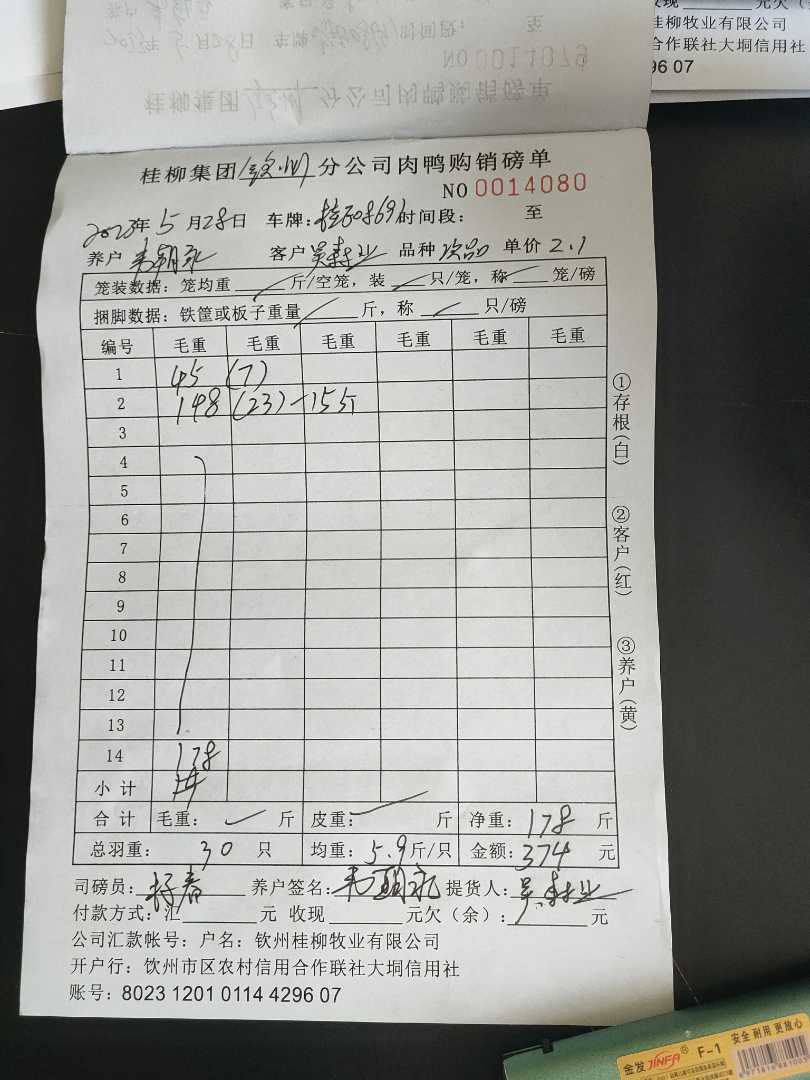 元欠（
桂柳牧业有限公司
合作联社大垌信用社
96 07
NO 0014079
桂柳集团 分公司肉鸭购销磅单
桂柳集团(钦州)分公司肉鸭购销磅单
NO 0014080
2023年 5 月 28 日 车牌: 时间段: 至
养户 韦朝永 客户 品种 次品 单价 2.1
笼装数据: 笼均重 斤/空笼, 装 只/笼, 称 笼/磅
捆脚数据: 铁筐或板子重量 斤, 称 只/磅
编号 毛重 毛重 毛重 毛重 毛重 毛重
1 45 (7)
2 148 (23) -15斤
3
4
5
6
7
8
9
10
11
12
13
14 178
小计
合计 毛重: 斤 皮重: 斤 净重: 178 斤
总羽重: 30 只 均重: 5.9 斤/只 金额: 374 元
司磅员: 养户签名: 韦朝永 提货人:
付款方式: 汇 元 收现 元欠（余）: 元
公司汇款帐号: 户名: 钦州桂柳牧业有限公司
开户行: 饮州市区农村信用合作联社大垌信用社
账号: 8023 1201 0114 4296 07
①存根(白)
②客户(红)
③养户(黄)
金发 JINFA® F-1 安全 耐用 更放心